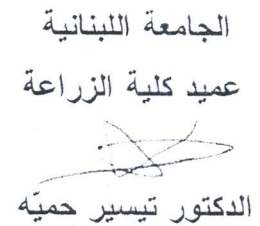 الجامعة اللبنانية
عميد كلية الزراعة
الدكتور تيسير حميّه